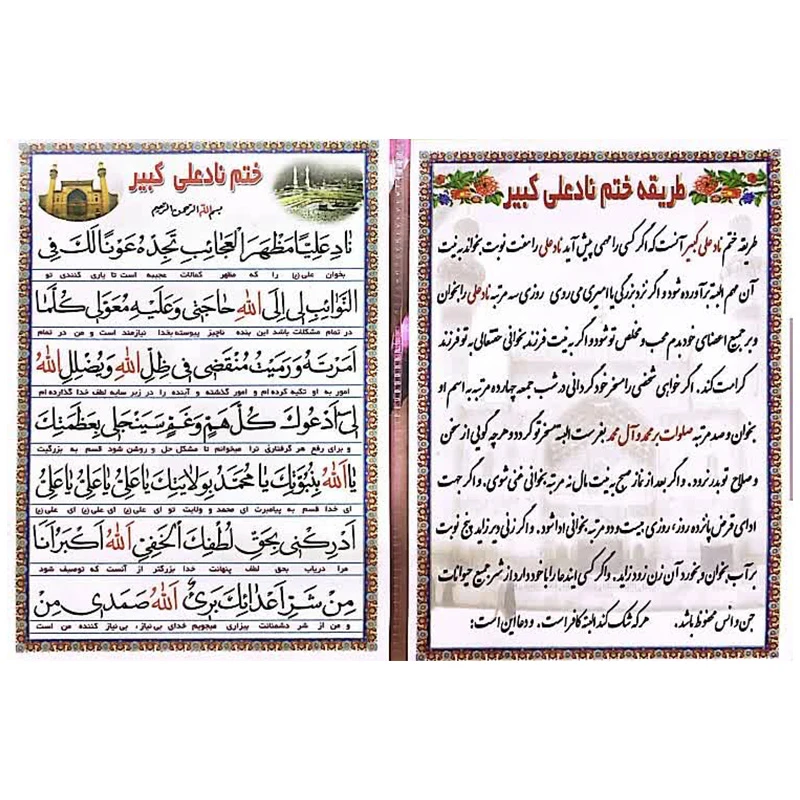 طریقه ختم ناد علی کبیر
طریقه ختم ناد علی کبیر آنست که اگر کسی را مهمی پیش آید ناد علی را هفت نوبت بخواند به نیت
آن مهم البته برآورده شود و اگر نزد بزرگی یا امیری می روی روزی سه مرتبه ناد علی را بخوان
و بر جمیع اعضای خود بدم محب و مخلص تو شود و اگر به نیت فرزند بخوانی حقتعالی به تو فرزند
کرامت کند. اگر خواهی شخصی را مسخر خود گردانی در شب جمعه چهارده مرتبه به اسم او
بخوان و صد مرتبه صلوات بر محمد و آل محمد بفرست البته مسخر تو گردد و هر چه گویی از سخن
و صلاح تو بدر نرود. و اگر بعد از نماز صبح به نیت مال نه مرتبه بخوانی غنی شوی. و اگر جهت
ادای قرض پانزده روز، روزی بیست و دو مرتبه بخوانی ادا شود. و اگر زنی دیر زاید پنج نوبت
بر آب بخوان و بخورد آن زن زود زاید. و اگر کسی این دعا را با خود دارد از شر جمیع حیوانات
جن و انس محفوظ باشد. هر که شک کند البته کافر است. و دعا این است:
ختم ناد علی کبیر
بسم الله الرحمن الرحیم
نادِ عَلِیّاً مَظْهَرَ الْعَجائِبِ تَجِدْهُ عَوْناً لَکَ فِی
بخوان علی(ع) را که مظهر کمالات عجیبه است تا یاری کنندی تو
النَّوائِبِ لی اِلَی اللهِ حاجَتی وَ عَلَیْهِ مُعَوَّلی کُلَّما
در تمام مشکلات باشد این بنده ناچیز پیوسته بخدا نیازمند است و من در تمام
اَمَرْتَهُ وَ رَمَیْتُ مُنْقَضی فی ظِلِّ اللهِ وَ یُضْلِلِ اللهُ
امور به او تکیه کرده ام و امور گذشته و آینده را در زیر سایه لطف خدا گذارده ام
لی اَدْعُوکَ کُلَّ هَمٍّ وَ غَمٍّ سَیَنْجَلی بِعَظَمَتِکَ
و برای رفع هر گرفتاری ترا میخوانم تا مشکل حل و روشن شود قسم به بزرگیت
یا اَللهُ بِنُبُوَّتِکَ یا مُحَمَّدُ بِوِلایَتِکَ یا عَلِیُّ یا عَلِیُّ یا عَلِیُّ
ای خدا قسم به پیامبرت ای محمد و ولایت تو ای علی(ع) ای علی(ع) ای علی(ع)
اَدْرِکْنی بِحَقِّ لُطْفِکَ الْخَفِیِّ اَللهُ اَکْبَرُ اَنَا
مرا دریاب بحق لطف پنهانت خدا بزرگتر از آنست که توصیف شود
مِنْ شَرِّ اَعْدائِکَ بَرِیءٌ اَللهُ صَمَدی مِنْ
و من از شر دشمنانت بیزاری میجویم خدای بی نیاز، بی نیاز کننده من است